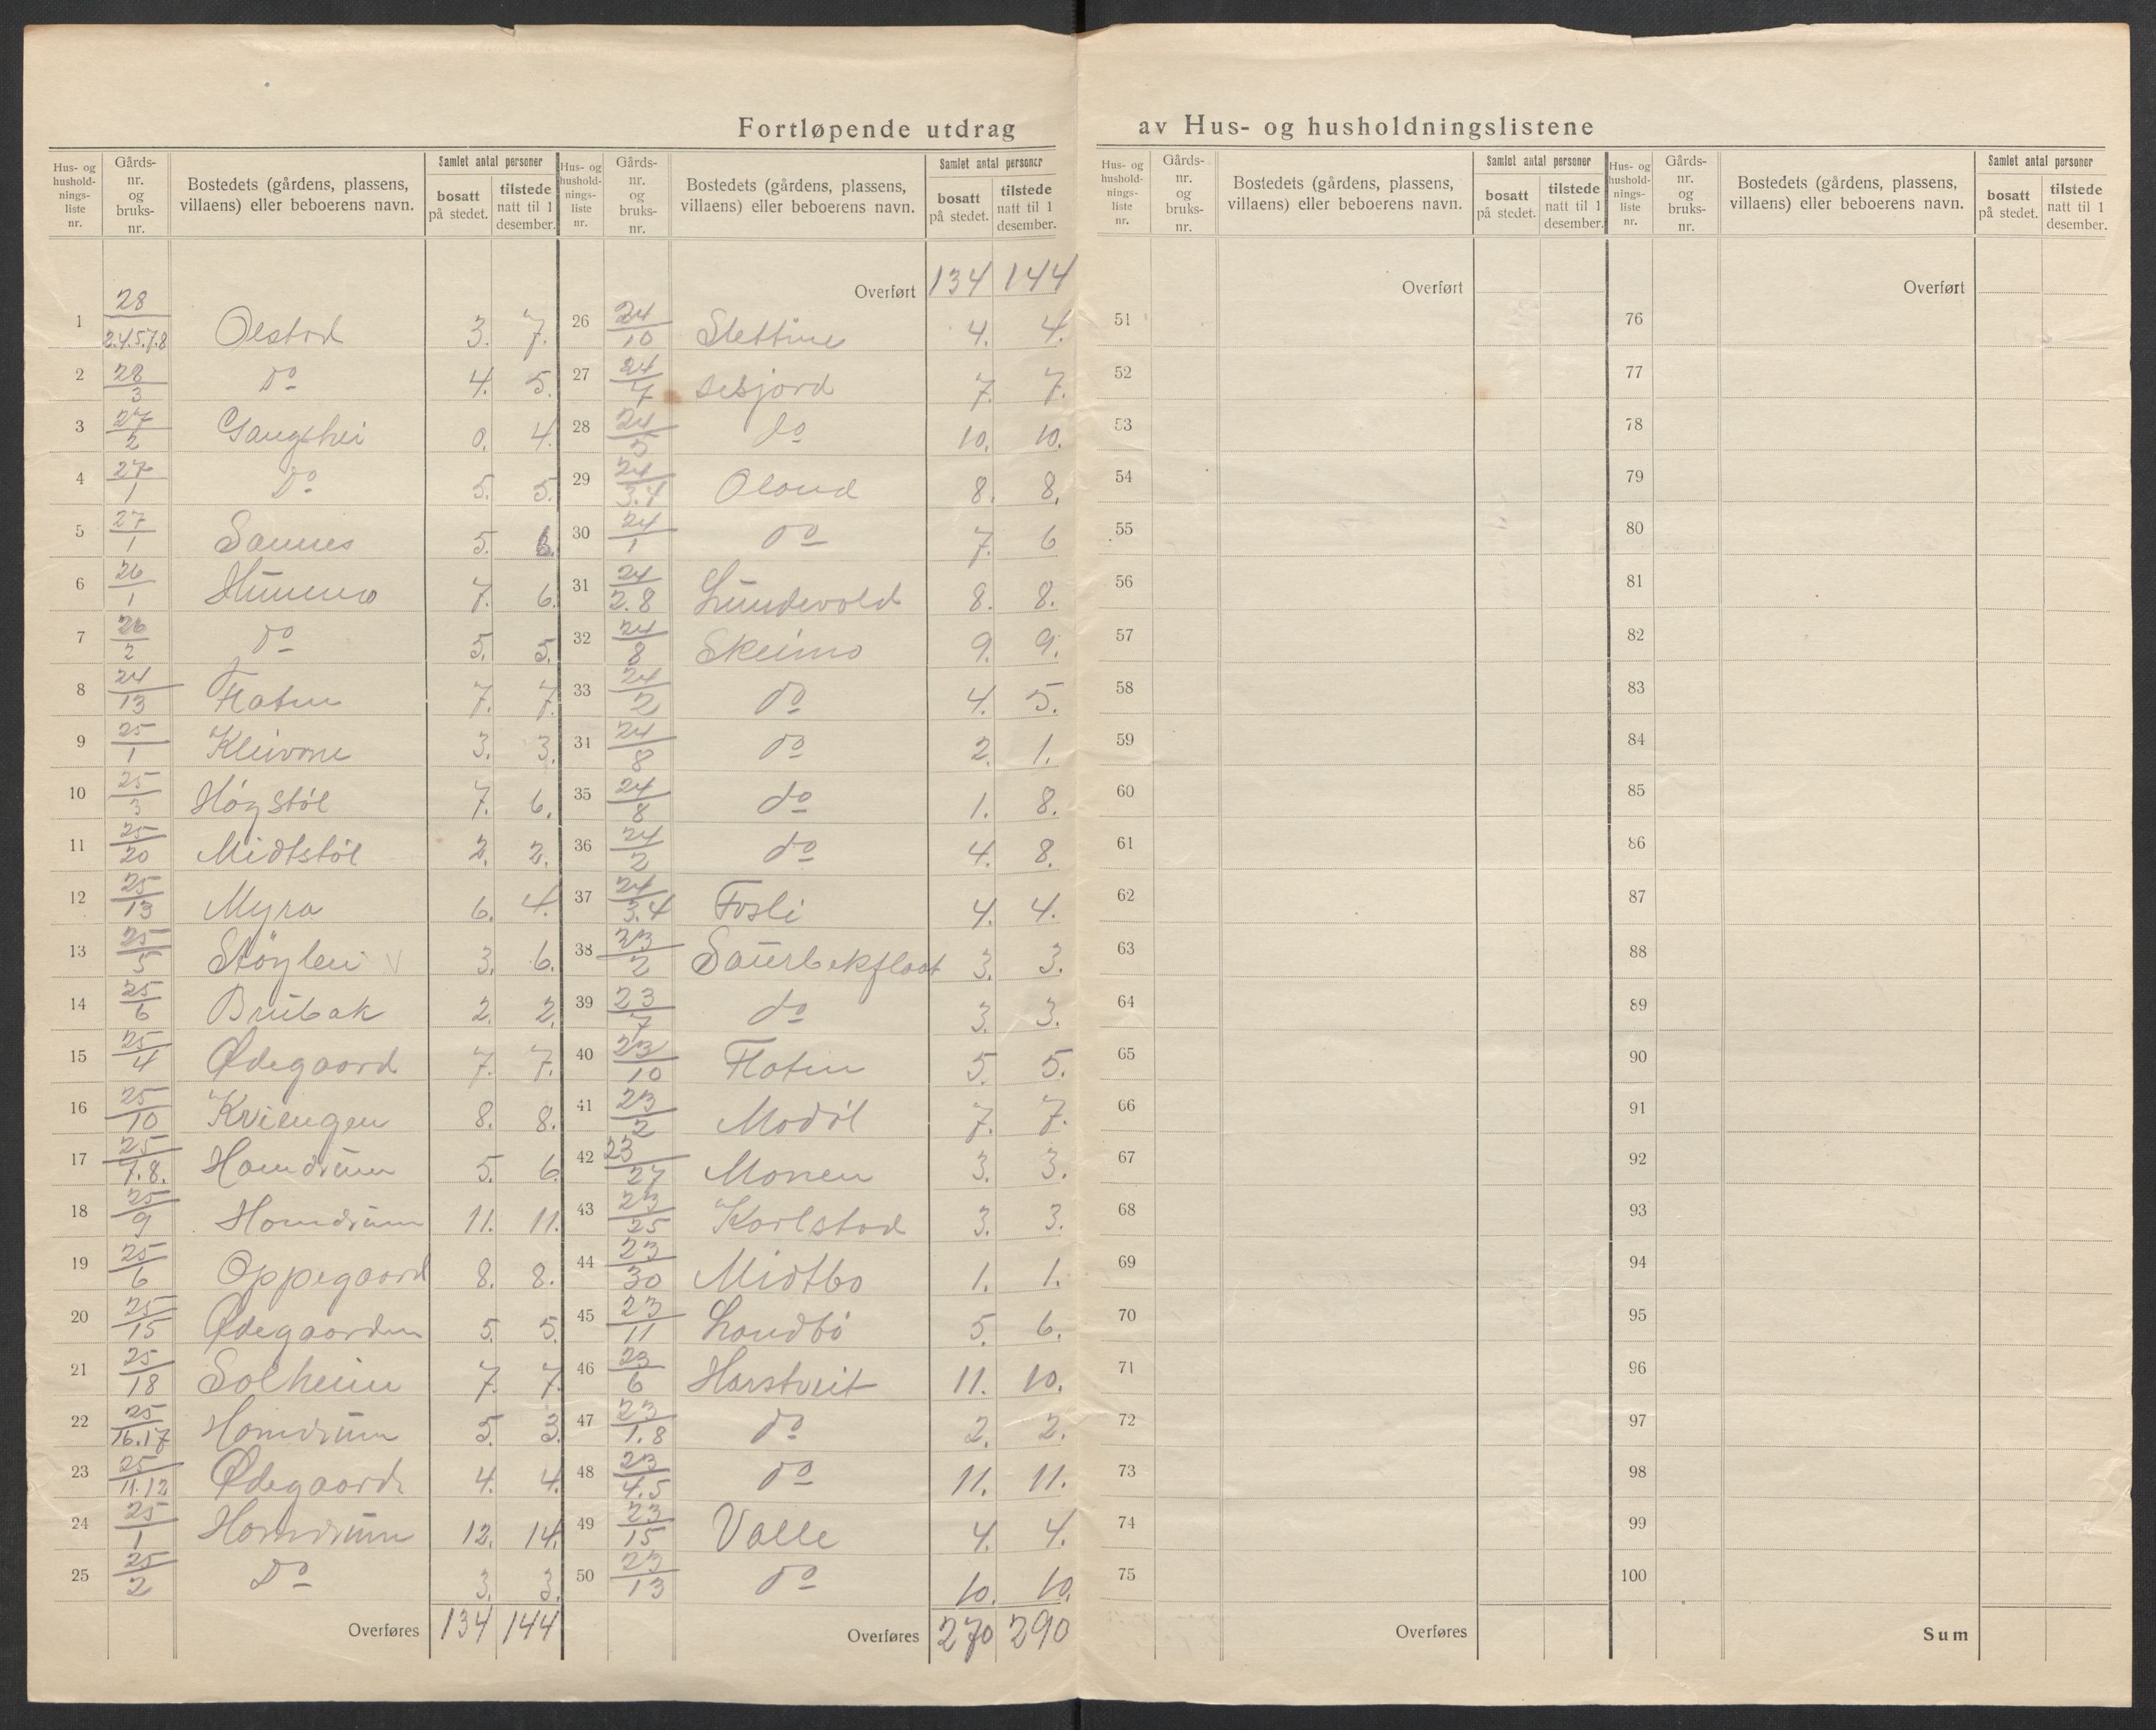 Fortløpende utdrag av Hus- og husholdningslistene
Hus- og husholdnings- liste nr. | Gårds- nr. og bruks- nr. | Bostedets (gårdens, plassens, villaens) eller beboerens navn. | Samlet antal personer | bosatt på stedet. | tilstede natt til 1 desember.
1 28/2.4.5.7.8 Olstad 3. 7.
2 28/3 Do 4. 5.
3 27/2 Gangshei 0. 4.
4 27/1 Do 5. 5.
5 27/1 Sannes 5. 6.
6 26/1 7. 6.
7 26/2 do 5. 5.
8 24/13 Flaten 7. 7.
9 25/1 Kleivone 3. 3.
10 25/3 Høgstøl 7. 6.
11 25/20 Midtstøl 2. 2.
12 25/13 Myra 6. 4.
13 25/5 Støylen V 3. 6.
14 25/6 Brubak 2. 2.
15 25/4 Ødegaard 7. 7.
16 25/10 Kviengen 8. 8.
17 25/7.8. Homdrum 5. 6.
18 25/9 Homdrum 11. 11.
19 25/6 Oppegaard 8. 8.
20 25/15 Ødegaarden 5. 5.
21 25/18 Solheim 7. 7.
22 25/16.17 Homdrum 5. 3.
23 25/11.12 Ødegaard 4. 4.
24 25/1 Homdrum 12. 14.
25 25/2 Do 3. 3.
Overføres 134 144
Hus- og husholdnings- liste nr. | Gårds- nr. og bruks- nr. | Bostedets (gårdens, plassens, villaens) eller beboerens navn. | Samlet antal personer | bosatt på stedet. | tilstede natt til 1 desember.
Overført 134 144
26 24/10 Slettine 4. 4.
27 24/7 sesjord 7. 7.
28 24/5 do 10. 10.
29 24/3.4 Oland 8. 8.
30 24/1 do 7. 6
31 24/2.8 Lundevold 8. 8.
32 24/8 Skeimo 9. 9.
33 24/2 do 4. 5.
31 24/8 do 2. 1.
35 24/8 do 1. 8.
36 24/2 do 4. 8.
37 24/3.4 Fosli 4. 4.
38 23/2 Saurbekflaat 3. 3.
39 23/7 do 3. 3.
40 23/10 Flaten 5. 5.
41 23/2 Modøl 7. 7.
42 23/27 Monen 3. 3.
43 23/25 Karlstad 3. 3.
44 23/30 Midtbo 1. 1.
45 23/11 Landbø 5. 6.
46 23/6 Harstveit 11. 10.
47 23/1.8 do 2. 2.
48 23/4.5 do 11. 11.
49 23/15 Valle 4. 4.
50 23/13 do 10. 10.
Overføres 270 290
Hus- og hushold- nings- liste nr. | Gårds- nr. og bruks- nr. | Bostedets (gårdens, plassens, villaens) eller beboerens navn. | Samlet antal personer | bosatt på stedet. | tilstede natt til 1 desember.
Overført
51
52
53
54
55
56
57
58
59
60
61
62
63
64
65
66
67
68
69
70
71
72
73
74
75
Overføres
Hus- og hushold- nings- liste nr. | Gårds- nr. og bruks- nr. | Bostedets (gårdens, plassens, villaens) eller beboerens navn. | Samlet antal personer | bosatt på stedet. | tilstede natt til 1 desember.
Overført
76
77
78
79
80
81
82
83
84
85
86
87
88
89
90
91
92
93
94
95
96
97
98
99
100
Sum